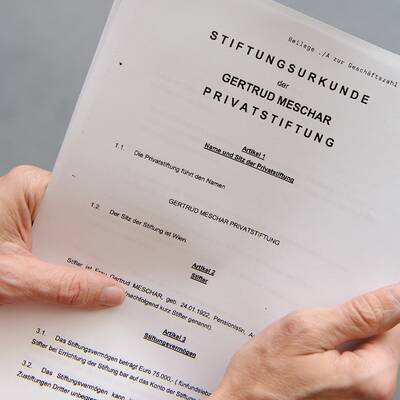 Beilage ./A zur Geschäftszahl
STIFTUNGSURKUNDE
der
GERTRUD MESCHAR
PRIVATSTIFTUNG
Artikel 1
Name und Sitz der Privatstiftung
1.1. Die Privatstiftung führt den Namen
GERTRUD MESCHAR PRIVATSTIFTUNG
1.2. Der Sitz der Stiftung ist Wien.
Artikel 2
Stifter
Stifter ist Frau Gertrud MESCHAR, geb. 24.01.1922, Pensionistin,
(nachfolgend kurz Stifter genannt).
Artikel 3
Stiftungsvermögen
3.1. Das Stiftungsvermögen beträgt Euro 75.000,-
Stifter bei Errichtung der Stiftung bar auf das Konto der
3.2. Das Stiftungsvermögen kann
Zustiftungen Dritter